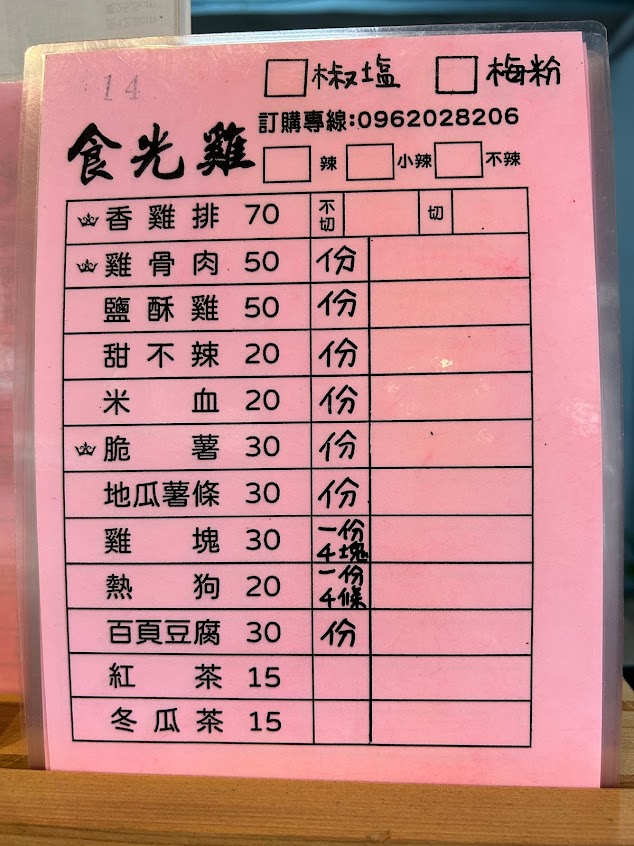 14
椒塩 梅粉
訂購專線:0962028206
食光雞
辣 小辣 不辣
香雞排 70 不切 切
雞骨肉 50 份
鹽酥雞 50 份
甜不辣 20 份
米血 20 份
脆薯 30 份
地瓜薯條 30 份
雞塊 30 一份4塊
熱狗 20 一份4條
百頁豆腐 30 份
紅茶 15
冬瓜茶 15